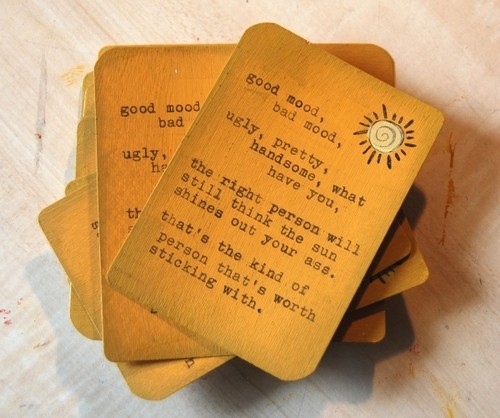 good mood,
bad mood,
ugly, pretty,
handsome, what
have you,
the right person will
still think the sun
shines out your ass.
that's the kind of
person that's worth
sticking with.
good mood
bad
ugly,
ha
th